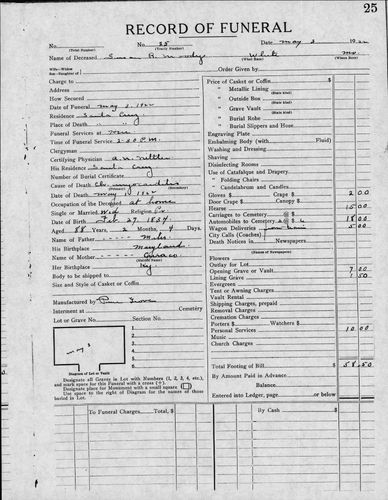 25
RECORD OF FUNERAL
No. No. 25 Date May 3 19
(Total Number) (Yearly Number)
Name of Deceased Susan B. Moody White Mo.
(What Race) (Where Born)
Wife—Widow
Son—Daughter of
Charge to
Address
How Secured
Date of Funeral May
Residence Santa Cruz
Place of Death "
Funeral Services at
Time of Funeral Service 2-00 P.M.
Clergyman
Certifying Physician
His Residence Santa Cruz
Number of Burial Certificate
Cause of Death Ch. myocarditis
Date of Death May
Occupation of the Deceased at home
Single or Married Wid Religion
Date of Birth Feb 27, 1834
Aged 88 Years, 2 Months, 4 Days.
Name of Father Mohr
His Birthplace Maryland
Name of Mother
(Maiden Name)
Her Birthplace Ky
Body to be shipped to
Size and Style of Casket or Coffin
Manufactured by
Interment at Cemetery
Lot or Grave No. Section No.
1
2
3
4
5
Diagram of Lot or Vault
Designate all Graves in Lot with Numbers (1, 2, 3, 4, etc.),
and mark space for this Funeral with a cross (+).
Designate place for Monument with a small square
Use space to right of Diagram for the names of those
buried in Lot.
Order Given by
Price of Casket or Coffin $
" Metallic Lining
(State Kind)
" Outside Box
(State Kind)
" Grave Vault
(State Kind)
" Burial Robe
(State Kind)
" Burial Slippers and Hose
Engraving Plate
Embalming Body (with Fluid)
Washing and Dressing
Shaving
Disinfecting Rooms
Use of Catafalque and Drapery
" Folding Chairs
" Candelabrum and Candles
Gloves $ Crape $ 2 00
Door Crape $ Canopy $
Hearse 15 00
Carriages to Cemetery @ $
Automobiles to Cemetery @ $ 6 18 00
Wagon Deliveries 5 00
City Calls (Coaches)
Death Notices in Newspapers.
(Names of Newspapers)
Flowers
Outlay for Lot
Opening Grave or Vault 7 00
Lining Grave 1 50
Evergreen
Tent or Awning Charges
Vault Rental
Shipping Charges, prepaid
Removal Charges
Cremation Charges
Porters $ Watchers $
Personal Services 10 00
Music
Church Charges
Total Footing of Bill $ 58 50
By Amount Paid in Advance
Balance
Entered into Ledger, page or below.
To Funeral Charges. Total, $
By Cash $